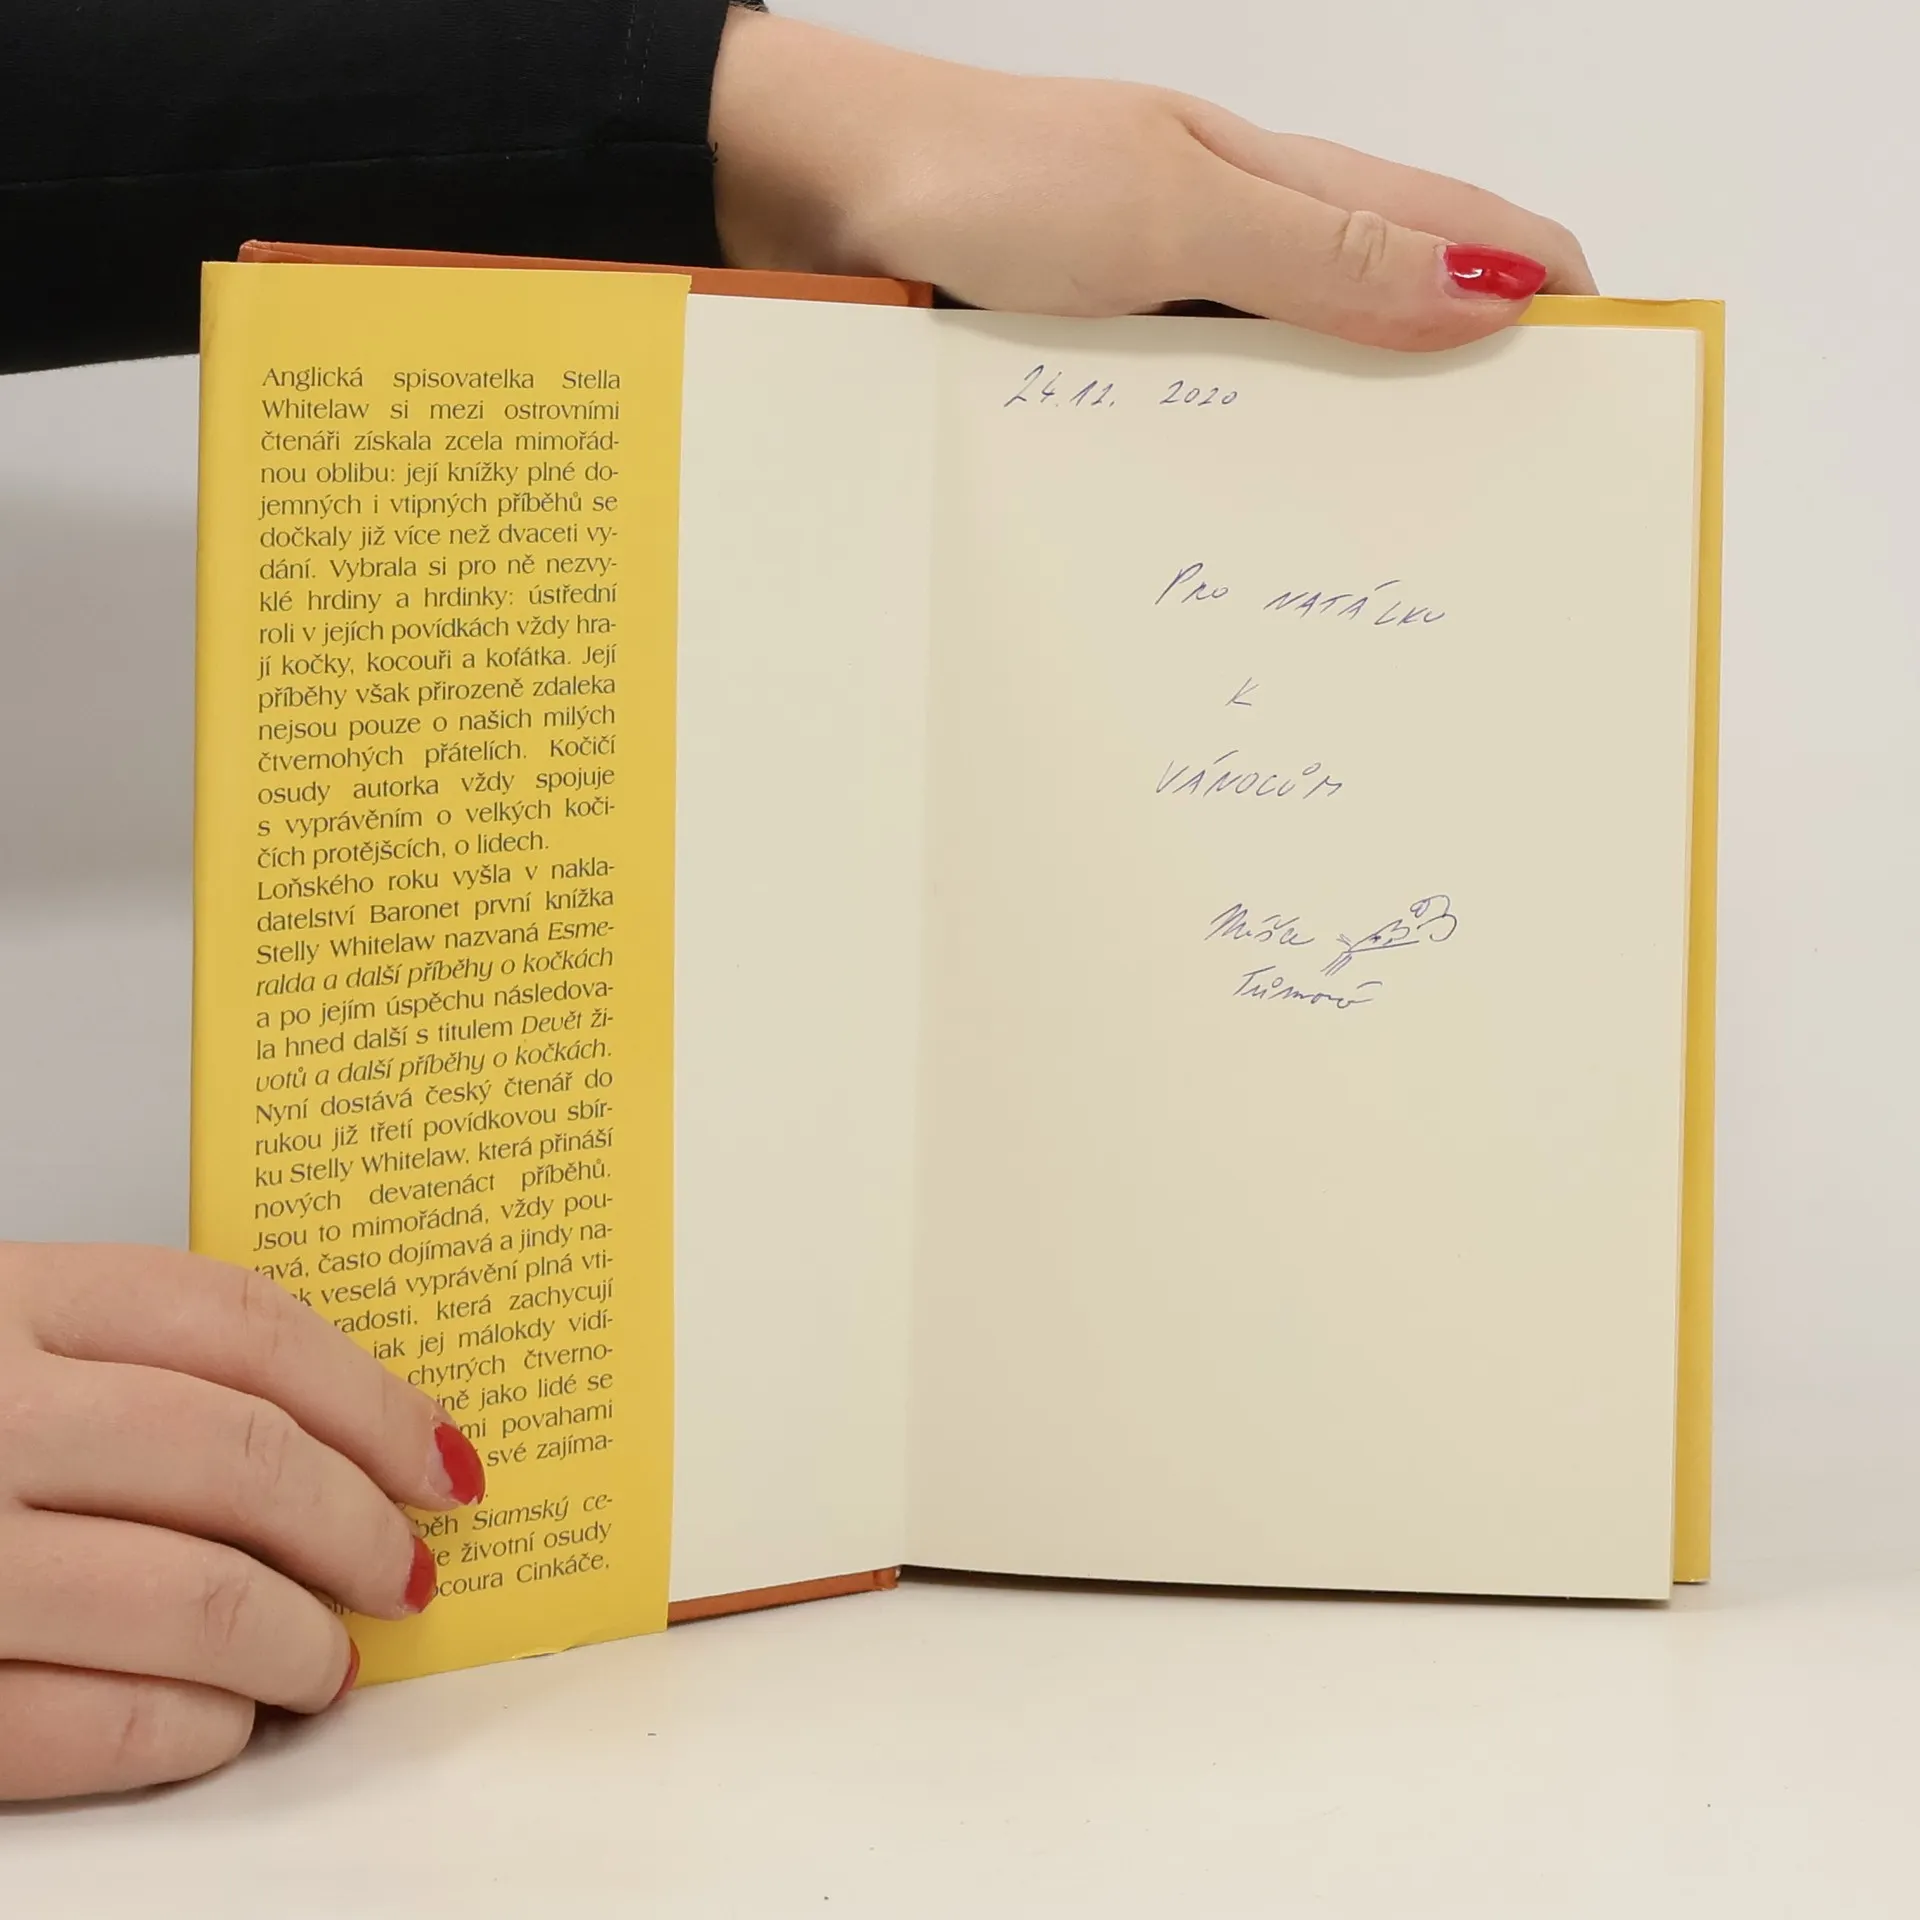 Anglická spisovatelka Stella
Whitelaw si mezi ostrovními
čtenáři získala zcela mimořád-
nou oblibu: její knížky plné do-
jemných i vtipných příběhů se
dočkaly již více než dvaceti vy-
dání. Vybrala si pro ně nezvy-
klé hrdiny a hrdinky: ústřední
roli v jejích povídkách vždy hra-
jí kočky, kocouři a koťátka. Její
příběhy však přirozeně zdaleka
nejsou pouze o našich milých
čtvernohých přátelích. Kočičí
osudy autorka vždy spojuje
s vyprávěním o velkých koči-
čích protějšcích, o lidech.
Loňského roku vyšla v nakla-
datelství Baronet první knížka
Stelly Whitelaw nazvaná Esme-
ralda a další příběhy o kočkách
a po jejím úspěchu následova-
la hned další s titulem Devět ži-
votů a další příběhy o kočkách.
Nyní dostává český čtenář do
rukou již třetí povídkovou sbír-
ku Stelly Whitelaw, která přináší
nových devatenáct příběhů.
Jsou to mimořádná, vždy pou-
tavá, často dojímavá a jindy na-
k veselá vyprávění plná vti-
radosti, která zachycují
jak jej málokdy vidí-
chytrých čtverno-
jně jako lidé se
mi povahami
své zajíma-
běh Siamský ce-
je životní osudy
ocoura Cinkáče,
24.12. 2020
PRO NATÁLKU
K
VÁNOCŮM
Míša
Tůmová